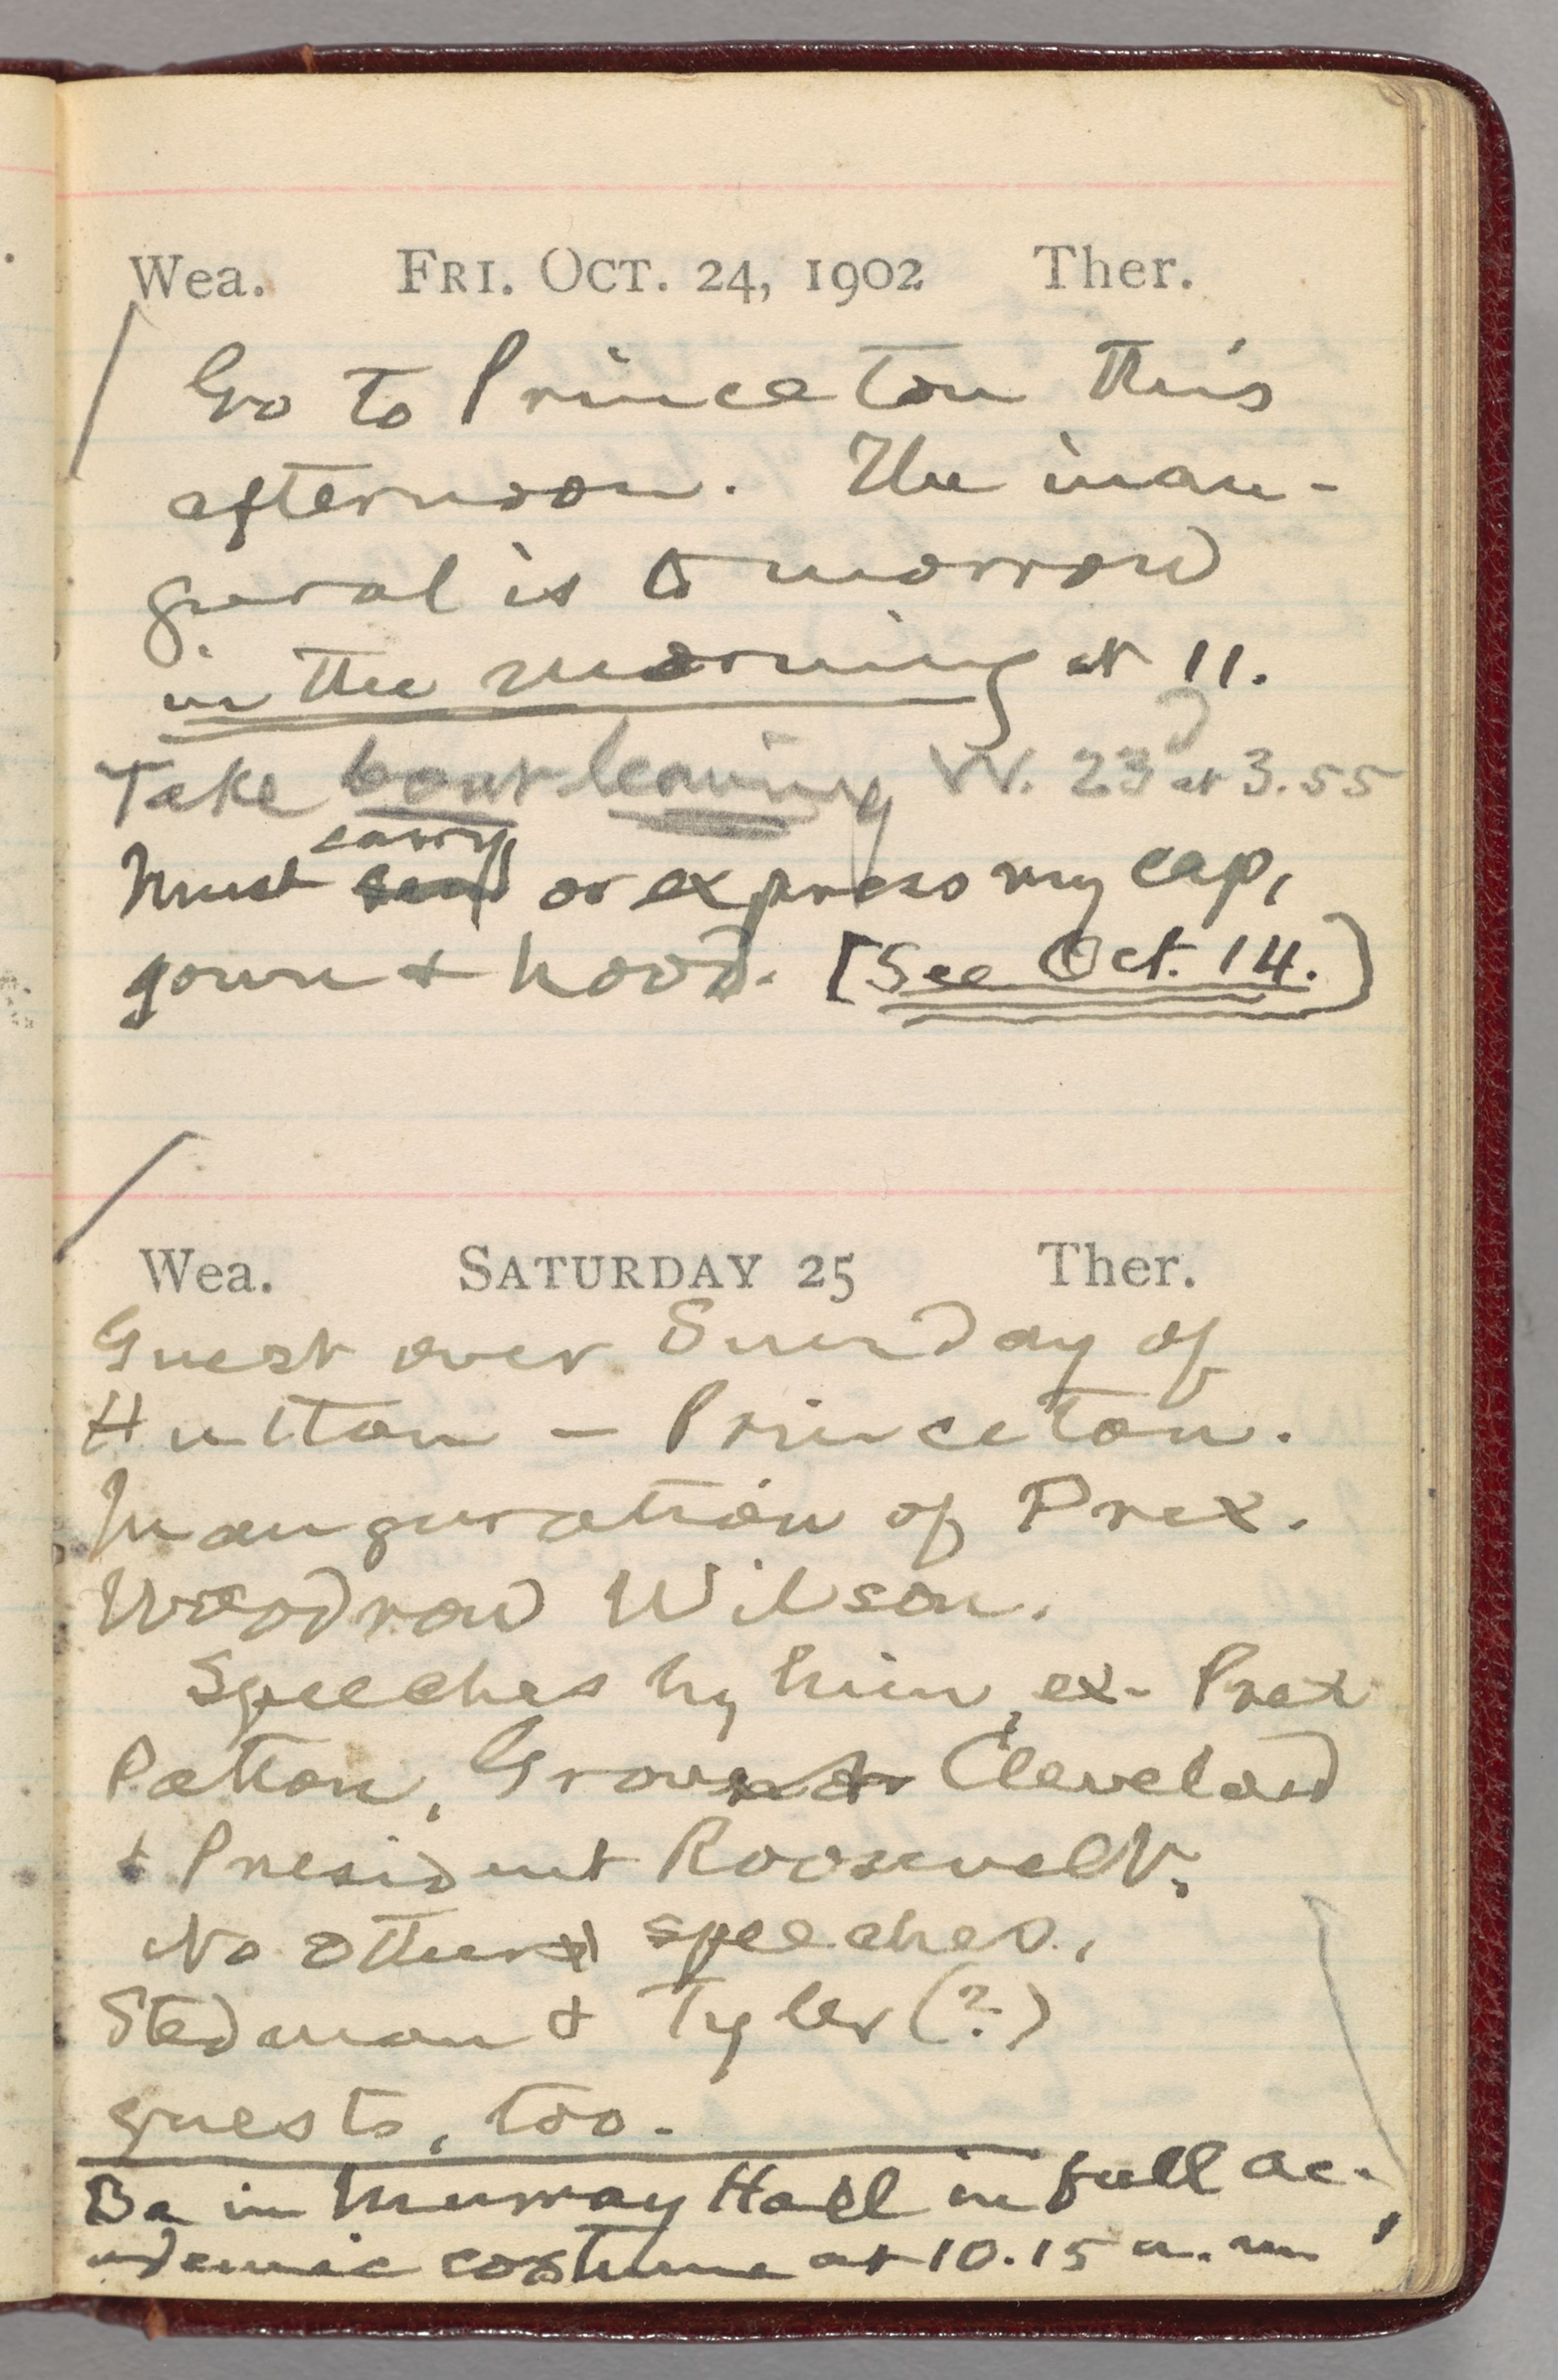 Wea. FRI. OCT. 24, 1902 Ther.
Go to Princeton this
afternoon. The inau-
gural is tomorrow
in the morning at 11.
Take boat leaving W. 23d at 3.55
carry
Must send or express my cap,
gown & hood. [See Oct. 14.)
Wea. SATURDAY 25 Ther.
Guest over Sunday of
Hutton – Princeton.
Inauguration of Prex.
Woodrow Wilson.
Speeches by him, ex-Prex
Patton, Grover Cleveland
& President Roosevelt.
No other speeches.
Stedman & Tyler (?)
guests, too.
Be in Murray Hall in full ac-
ademic costume at 10.15 a. m.